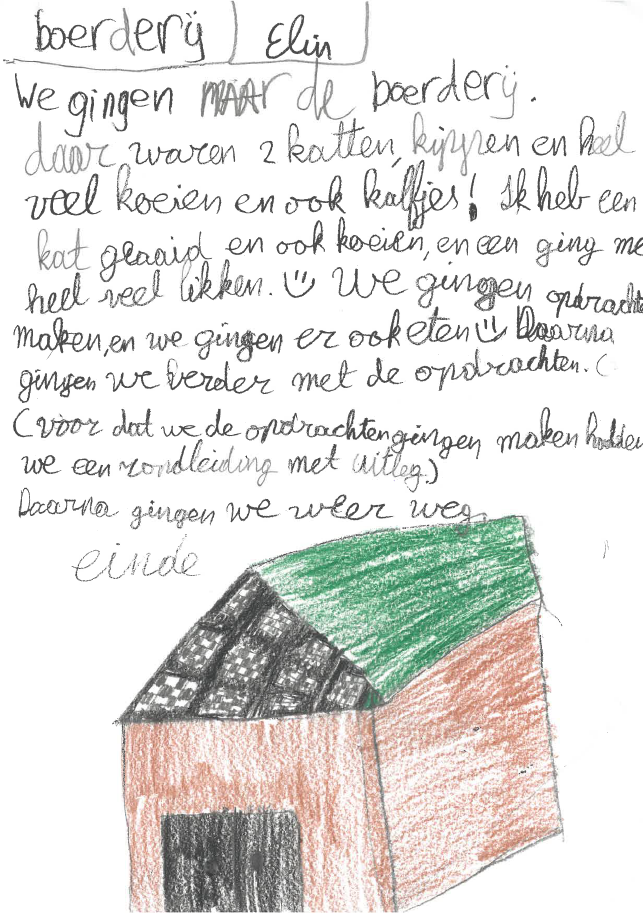 boerderij Elin
We gingen naar de boerderij.
daar waren 2 katten, kippen en heel
veel koeien en ook kalfjes! Ik heb een
kat geaaid en ook koeien, en een ging me
heel veel likken. We gingen opdrachte
maken, en we gingen er ook eten Daarna
gingen we verder met de opdrachten. (
(voor dat we de opdrachten gingen maken hadden
we een rondleiding met uitleg.)
Daarna gingen we weer weg.
einde